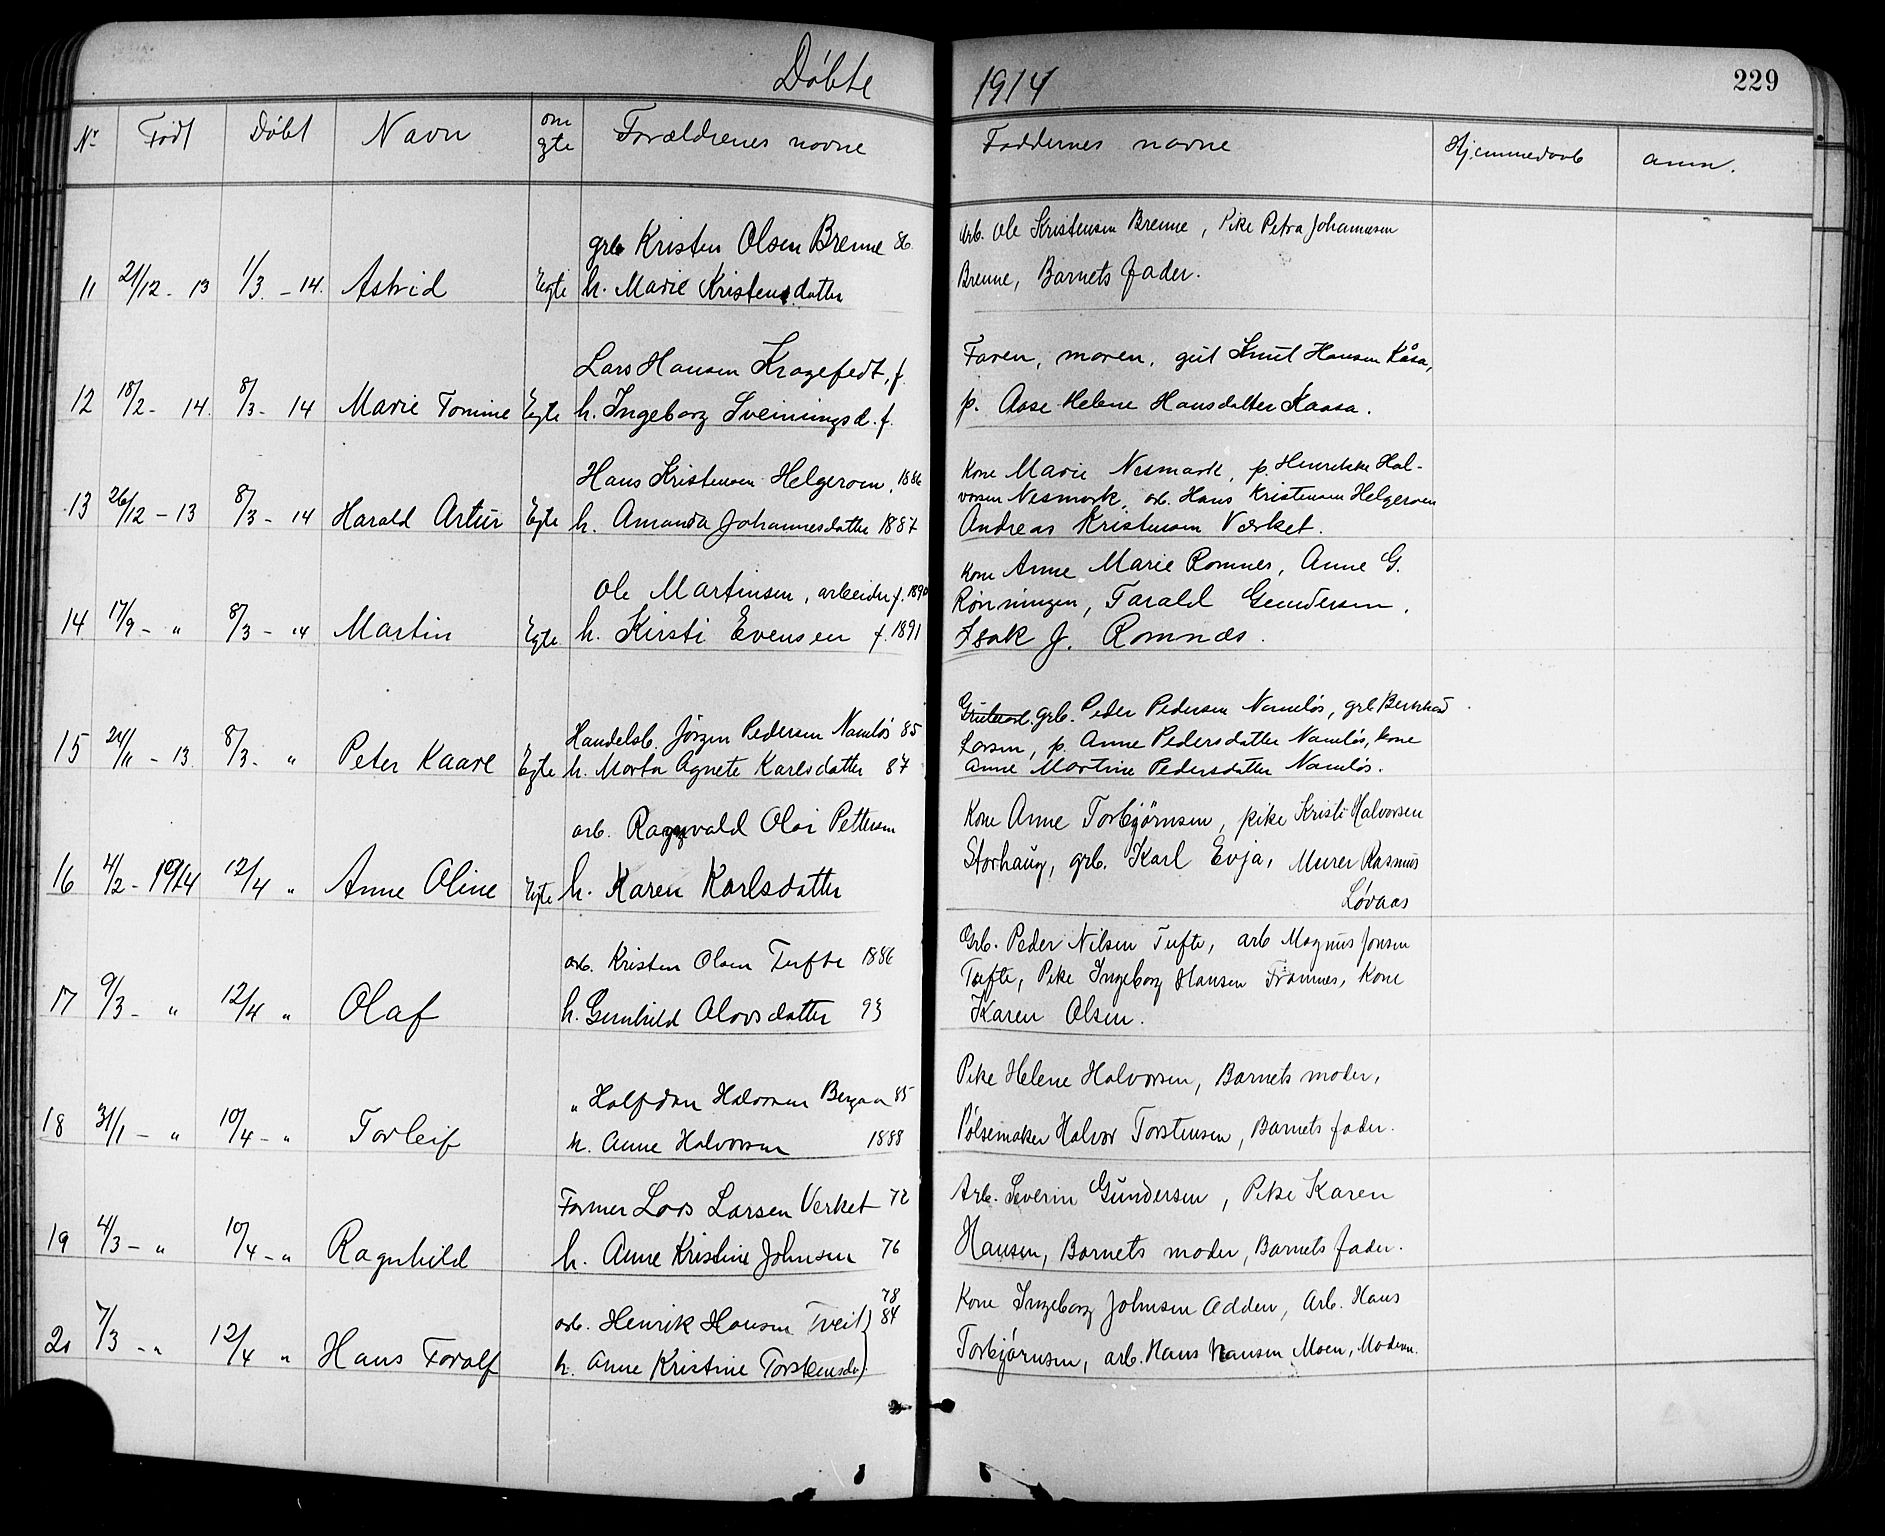 Döbte 1914 229
Nr Född Döbt Navn om ægte Forældrenes navne Faddernes navne Hjemmedaab anm.
grb Kristen Olsen Brenne 86. Arb. Ole Kristensen Brenne, Pike Petra Johannesen
11 21/12 - 13 1/3 - 14. Astrid Egte h. Marie Kristensdatter Brenne, Barnets fader.
Lars Hansen Kragefedt, f. Faren, moren, gut Knut Hansen Kåsa,
12 18/2 - 14. 8/3 - 14 Marie Tomine Egte h. Ingeborg Sveinungsd. f. p. Aase Helene Hansdatter Kaasa.
Hans Kristensen Helgeroen, 1886 Kone Marie Nesmark, p. Henrikke Hal-
vorsen Nesmark, arb. Hans Kristensen Helgeroen
13 26/12 - 13 8/3 - 14 Harald Artur Egte h. Amanda Johannesdatter 1887 Andreas Kristensen Værket.
Ole Martinsen, arbeider f. 1890 Kone Anne Marie Romnes, Anne G.
Rönningen, Tarald Gundersen,
14 17/9 - " 8/3 - 14 Martin Egte h. Kirsti Evensen f. 1891 Isak J. Romnæs.
grb. Peder Pedersen Namlös, grb Bernhard
Handelsb. Jörgen Pedersen Namlös 85 Larsen, p. Anne Pedersdatter Namlös, kone
15 24/11 - 13 8/3 - " Peter Kaare Egte h. Marta Agnete Karlsdatter 87 Anne Martine Pedersdatter Namlös.
arb. Ragnvald Olai Pettersen Kone Anne Torbjörnsen, pike Kristi Halvorsen
Storhaug, grb. Karl Evja, Murer Rasmus
16 4/2 - 1914 12/4 " Anne Oline Egte h. Karen Karlsdatter Løvaas
arb. Kristen Olsen Tufte 1886 Grb. Peder Nilsen Tufte, arb Magnus Jonsen
Tufte, Pike Ingeborg Hansen Framnes, Kone
17 9/3 - " 12/4 " Olaf h. Gunhild Olavsdatter 93 Karen Olsen.
" Halfdan Halvorsen Bergan 85 Pike Helene Halvorsen, Barnets moder,
18 31/1 - " 10/4 - " Torleif h. Anne Halvorsen 1888 Pølsemaker Halvor Torstensen, Barnets fader.
Former Lars Larsen Verket 72 Arb. Severin Gundersen, Pike Karen
19 4/3 - " 10/4 - " Ragnhild h. Anne Kristine Johnsen 76 Hansen, Barnets moder, Barnets fader.
78
arb. Henrik Hansen Tveit 84 Kone Ingeborg Johnsen Odden, Arb. Hans
20 7/3 - " 12/4 " Hans Toralf h. Anne Kristine Torstensdr Torbjørnsen, arb. Hans Hansen Moen, Moderen.